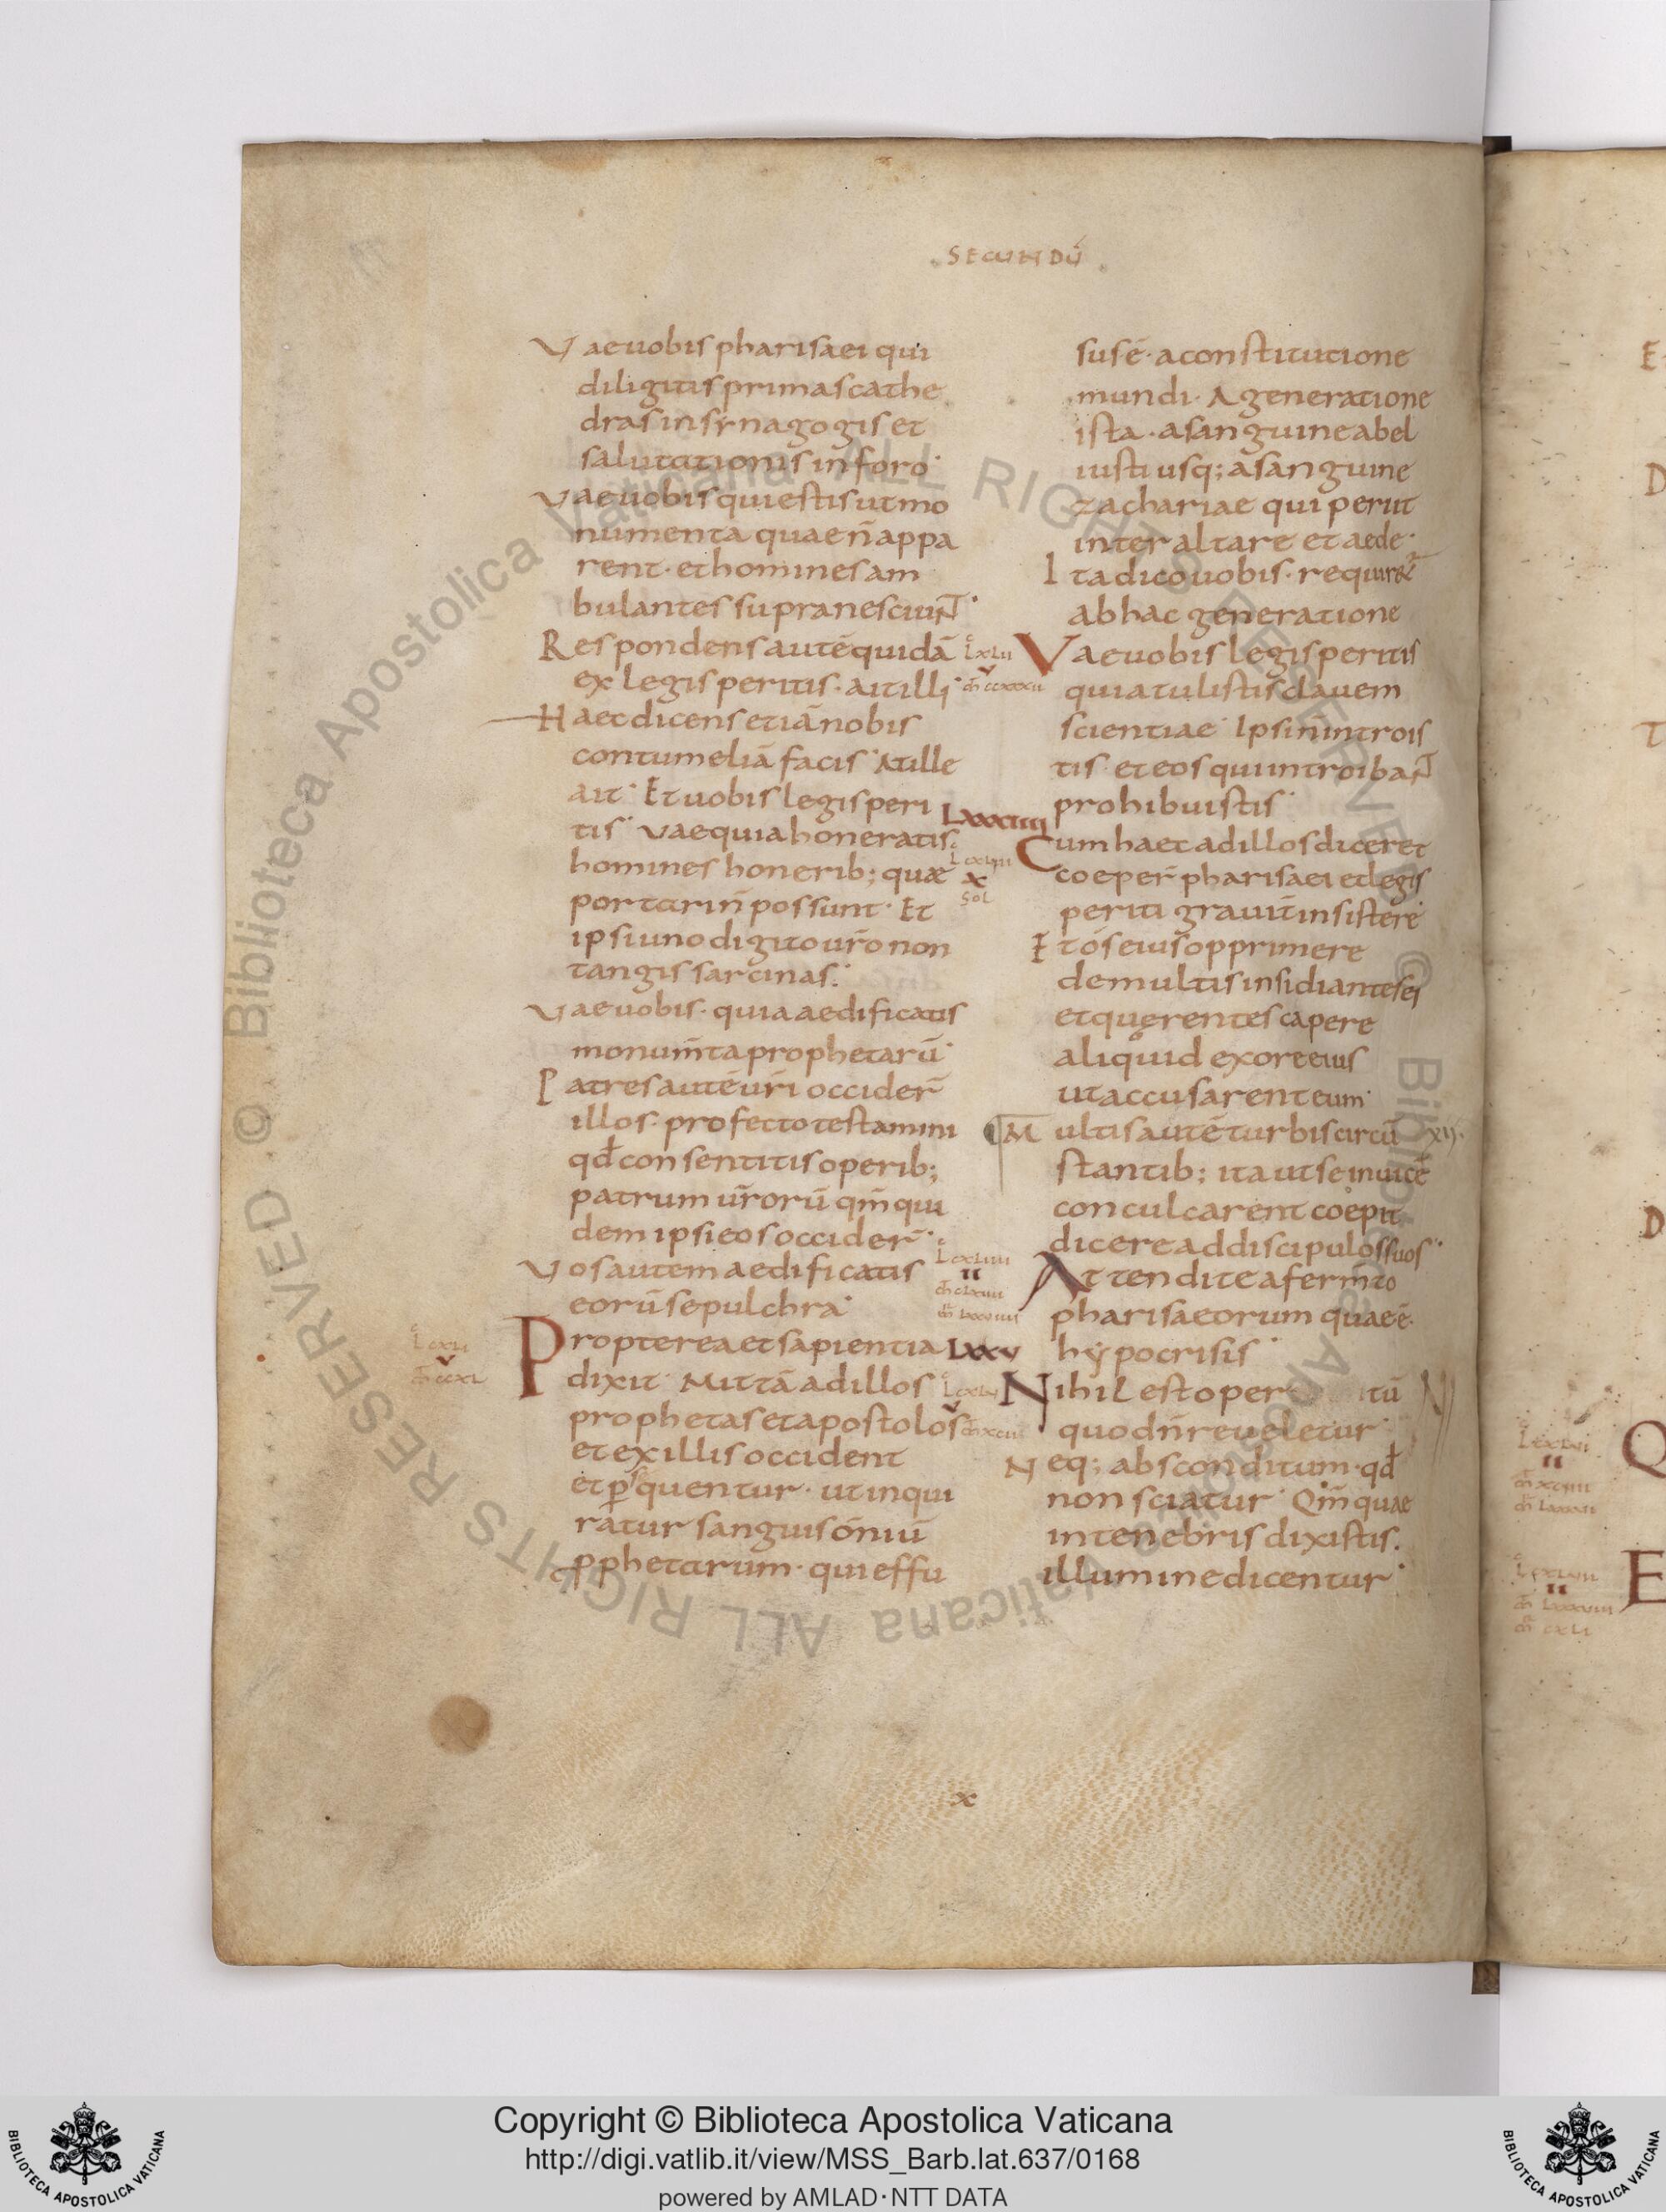 SECUNDŪ
Vae uobis pharisaei qui
diligitis primas cathe
dras in synagogis et
salutationis in foro
Vae uobis qui estis ut mo
numenta quae n̄ appa
rent· et homines am
bulantes supra nesciuNT·
Respondens autē quidā
ex legis peritis· ait illi·
Haec dicens etiā nobis
contumeliā facis· At ille
ait· Et uobis legis peri
tis· Vae quia honeratis
homines honerib; quae
portari n̄ possunt· Et
ipsi uno digito ur̄o non
tangis sarcinas·
Vae uobis· quia aedificatis
monum̄ta prophetarū·
Patres autē ur̄i occider̄
illos· profecto testamini
qđ consentitis operib;
patrum ur̄orū qm̄ qui
dem ipsi eos occider̄·
Vos autem aedificatis
eorū sepulchra·
Propterea et sapientia
dixit· Mittā ad illos
prophetas et apostolos
et ex illis occident
et ꝑsquentur· ut inqui
ratur sanguis om̄niū
ꝓphetarum· qui effu
LXXXIIII
x
SOL
II
LXXV
V
sus ē· a constitutione
mundi· A generatione
ista· a sanguine abel
iusti usq; a sanguine
zachariae qui periit
inter altare et aede·
Ita dico uobis· requiret̄
ab hac generatione
Vae uobis legis peritis
quia tulistis clauem
scientiae· Ipsi n̄ introis
tis· et eos qui introibaNT
prohibuistis·
Cum haec ad illos diceret
coeper̄ pharisaei et legis
periti grauit̄ insistere·
Et ós eius opprimere
de multis insidiantes ei
et quęrentes capere
aliquid ex ore eius
ut accusarent eum·
Multis autē turbis circū XIJ·
stantib; ita ut se inuicē
conculcarent coepit
dicere ad discipulos suos·
Attendite a ferm̄to
pharisaeorum quae ē·
hypocrisis·
Nihil est oper tū
quod n̄ reueletur·
Neq; absconditum· qđ
non sciatur· Qm̄ quae
in tenebris dixistis·
ill umine dicentur·
x
E
D
T
D
Q
E
Biblioteca Apostolica Vaticana ALL RIGHTS RESERVED © Biblioteca Apostolica Vaticana ALL RIGHTS RESERVED ©
Copyright © Biblioteca Apostolica Vaticana
http://digi.vatlib.it/view/MSS_Barb.lat.637/0168
powered by AMLAD·NTT DATA
BIBLIOTECA APOSTOLICA VATICANA
BIBLIOTECA APOSTOLICA VATICANA